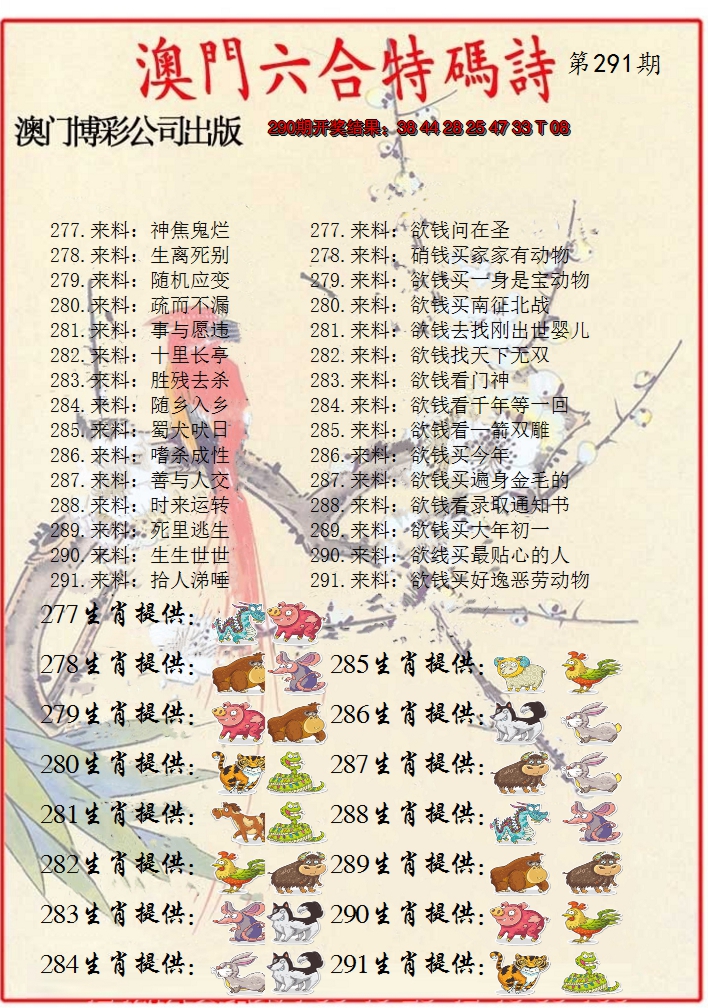 澳門六合特碼詩 第291期
澳门博彩公司出版 290期开奖结果：38 44 28 25 47 33 T 08
277.来料：神焦鬼烂 277.来料：欲钱问在圣
278.来料：生离死别 278.来料：硝钱买家家有动物
279.来料：随机应变 279.来料：欲钱买一身是宝动物
280.来料：疏而不漏 280.来料：欲钱买南征北战
281.来料：事与愿违 281.来料：欲钱去找刚出世婴儿
282.来料：十里长亭 282.来料：欲钱找天下无双
283.来料：胜残去杀 283.来料：欲钱看门神
284.来料：随乡入乡 284.来料：欲钱看千年等一回
285.来料：蜀犬吠日 285.来料：欲钱看一箭双雕
286.来料：嗜杀成性 286.来料：欲钱买今年
287.来料：善与人交 287.来料：欲钱买遍身金毛的
288.来料：时来运转 288.来料：欲钱看录取通知书
289.来料：死里逃生 289.来料：欲钱买大年初一
290.来料：生生世世 290.来料：欲线买最贴心的人
291.来料：拾人涕唾 291.来料：欲钱买好逸恶劳动物
277生肖提供：
278生肖提供： 285生肖提供：
279生肖提供： 286生肖提供：
280生肖提供： 287生肖提供：
281生肖提供： 288生肖提供：
282生肖提供： 289生肖提供：
283生肖提供： 290生肖提供：
284生肖提供： 291生肖提供：